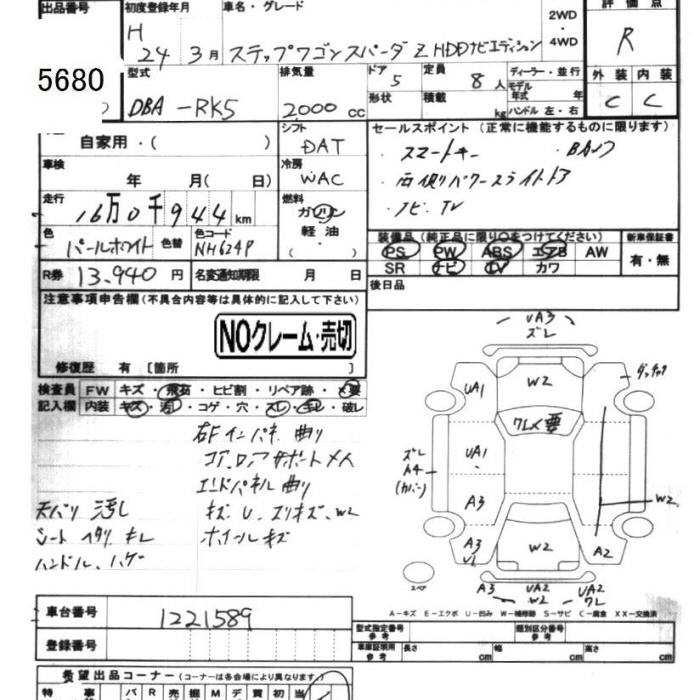 出品番号 初度登録年月 車名・グレード 2WD ・ 4WD 評価点
5680 H 24 3月 ステップワゴンスパーダ Z HDDナビエディション R
型式 DBA-RK5 排気量 2000 cc ドア 5 形状 定員 8人 積載 kg ディーラー・並行 モデル年式 年式 ハンドル 左・右 外装 内装 C C
自家用・( ) シフト DAT セールスポイント (正常に機能するものに限ります)
車検 年 月( 日) 冷房 WAC ・スマートキー ・Bカメラ
・両側パワースライドドア
走行 16万0千944km 燃料 ガソリン 軽油 ・( ) ・ナビ、TV
色 パールホワイト 色替 色コード NH624P 装備品 (純正品に限り○をつけてください) 新車保証書
PS PW ABS エアB AW 有・無
R券 13,940円 名変通知期限 月 日 SR ナビ TV カワ
注意事項申告欄 (不具合内容等は具体的に記入して下さい) 後日品
NOクレーム・売切
修復歴 有 [箇所 ]
検査員 FW キズ・飛石・ヒビ割・リペア跡・×要
記入欄 内装 キズ・汚れ・コゲ・穴・スレ・キレ・破レ
右Fインパネ 曲り
コアロアサポートメンへ
エンドパネル 曲り
天バリ 汚し キズ U、スリキズ、W2
シート ヘタリ キレ ホイールキズ
ハンドル、ハゲ
UA3
ズレ
UA1 W2 タッチアップ
ワレ×要
ズレ A4 (カバー) UA1
A3 W2
A3 U1 W2 A2
スペア A3 UA2 W2 UA2 ワレ
A－キズ E－エクボ U－凹み W－補修跡 S－サビ C－腐食 XX－交換済
車台番号 1221589 型式指定番号 参考 類別区分番号 参考
登録番号 車庫証明用 参考 長さ cm 幅 cm 高さ cm
希望出品コーナー (コーナーは各会場により異なります。)